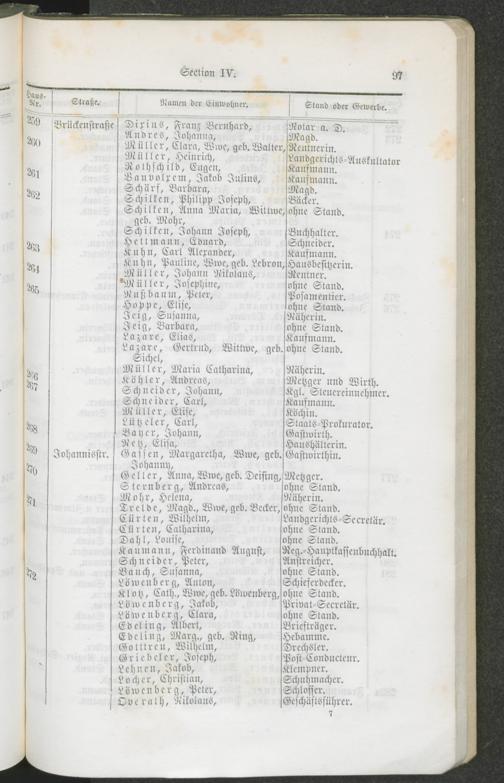 Section IV. 97
Haus-Nr. Straße. Namen der Einwohner. Stand oder Gewerbe.
259 Brückenstraße Dixius, Franz Bernhard, Notar a. D.
Andres, Johanna, Magd.
260 Müller, Clara, Wwe, geb. Walter, Rentnerin.
Müller, Heinrich, Landgerichts-Auskultator
Rothschild, Eugen, Kaufmann.
261 Vanvolxem, Jakob Julius, Kaufmann.
Schärf, Barbara, Magd.
262 Schilken, Philipp Joseph, Bäcker.
Schilken, Anna Maria, Wittwe, ohne Stand.
geb. Mohr,
Schilken, Johann Joseph, Buchhalter.
Hettmann, Eduard, Schneider.
263 Kuhn, Carl Alexander, Kaufmann.
Kuhn, Pauline, Wwe, geb. Lebron, Hausbesitzerin.
264 Müller, Johann Nikolaus, Rentner.
Müller, Josephine, ohne Stand.
265 Nußbaum, Peter, Posamentier.
Hoppe, Elise, ohne Stand.
Jeig, Susanna, Näherin.
Jeig, Barbara, ohne Stand.
Lazare, Elias, Kaufmann.
Lazare, Gertrud, Wittwe, geb. ohne Stand.
Sichel,
Müller, Maria Catharina, Näherin.
266 Köhler, Andreas, Metzger und Wirth.
267 Schneider, Johann, Kgl. Steuereinnehmer.
Schneider, Carl, Kaufmann.
Müller, Elise, Köchin.
Lützeler, Carl, Staats-Prokurator.
268 Bayer, Johann, Gastwirth.
Retz, Elisa, Haushälterin.
269 Johannisstr. Gassen, Margaretha, Wwe, geb. Gastwirthin.
Johanny,
270 Geller, Anna, Wwe, geb. Deising, Metzger.
Sternberg, Andreas, ohne Stand.
Mohr, Helena, Näherin.
271 Trelde, Magd., Wwe, geb. Becker, ohne Stand.
Cürten, Wilhelm, Landgerichts-Secretär.
Cürten, Catharina, ohne Stand.
Dahl, Louise, ohne Stand.
Kaumann, Ferdinand August, Reg.-Hauptkassenbuchhalt.
Schneider, Peter, Anstreicher.
Bauch, Susanna, ohne Stand.
272 Löwenberg, Anton, Schieferdecker.
Klotz, Cath., Wwe, geb. Löwenberg, ohne Stand.
Löwenberg, Jakob, Privat-Secretär.
Löwenberg, Clara, ohne Stand.
Edeling, Albert, Briefträger.
Edeling, Marg., geb. Ring, Hebamme.
Gottreu, Wilhelm, Drechsler.
Griebeler, Joseph, Post-Conducteur.
Lehnen, Jakob, Klempner.
Locher, Christian, Schuhmacher.
Löwenberg, Peter, Schlosser.
Overath, Nikolaus, Geschäftsführer.
7